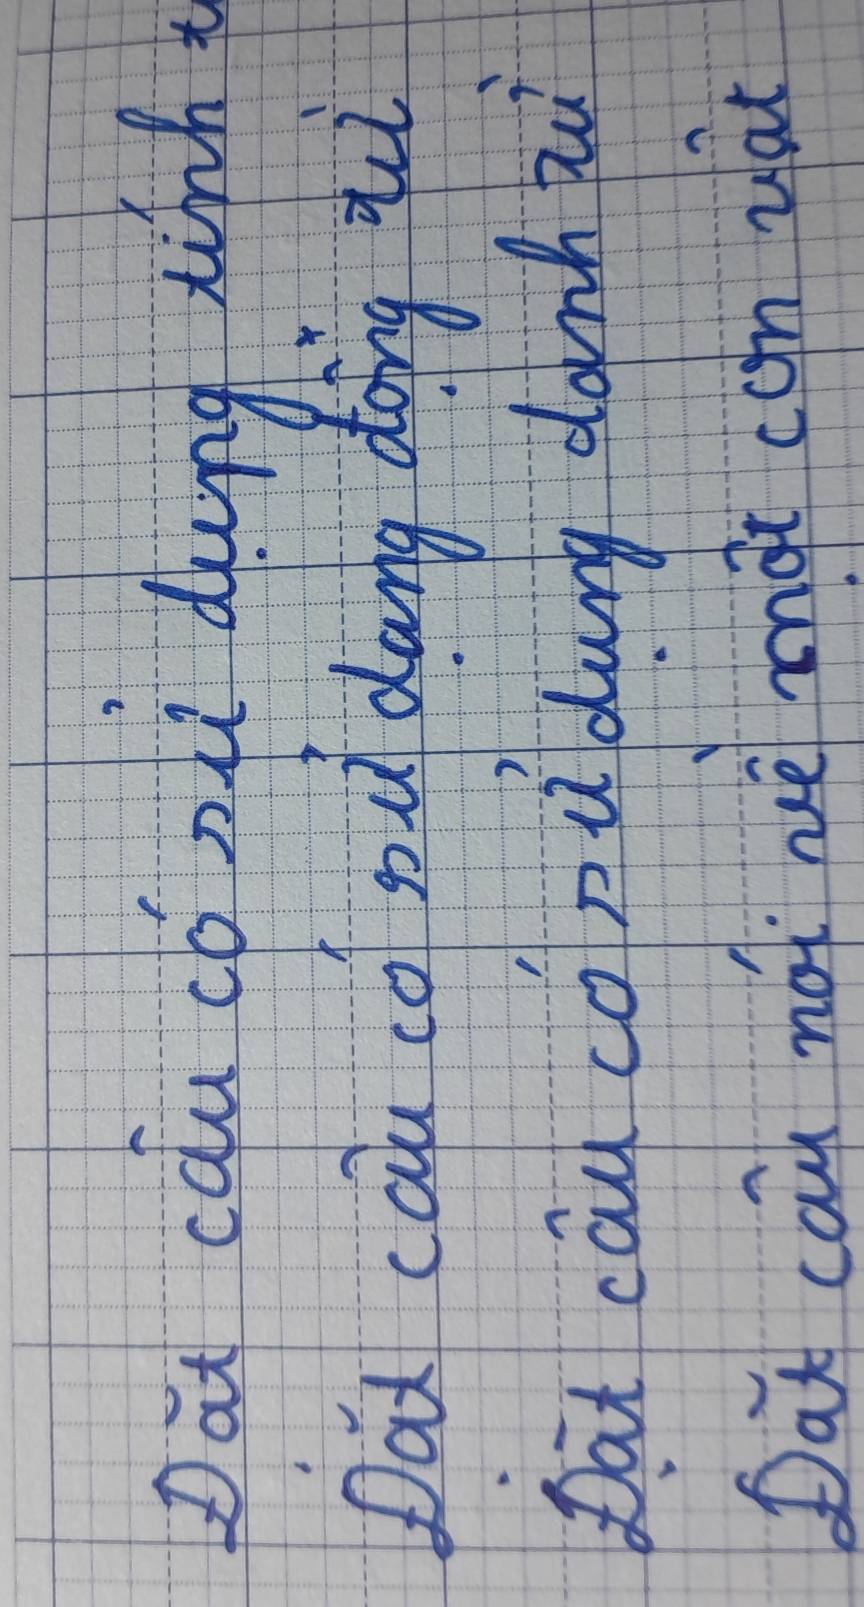 Đặt câu có sử dụng tính
Đặt câu có sử dạng động từ
Đặt câu có sử dụng danh từ
Đặt câu nói về một con vật